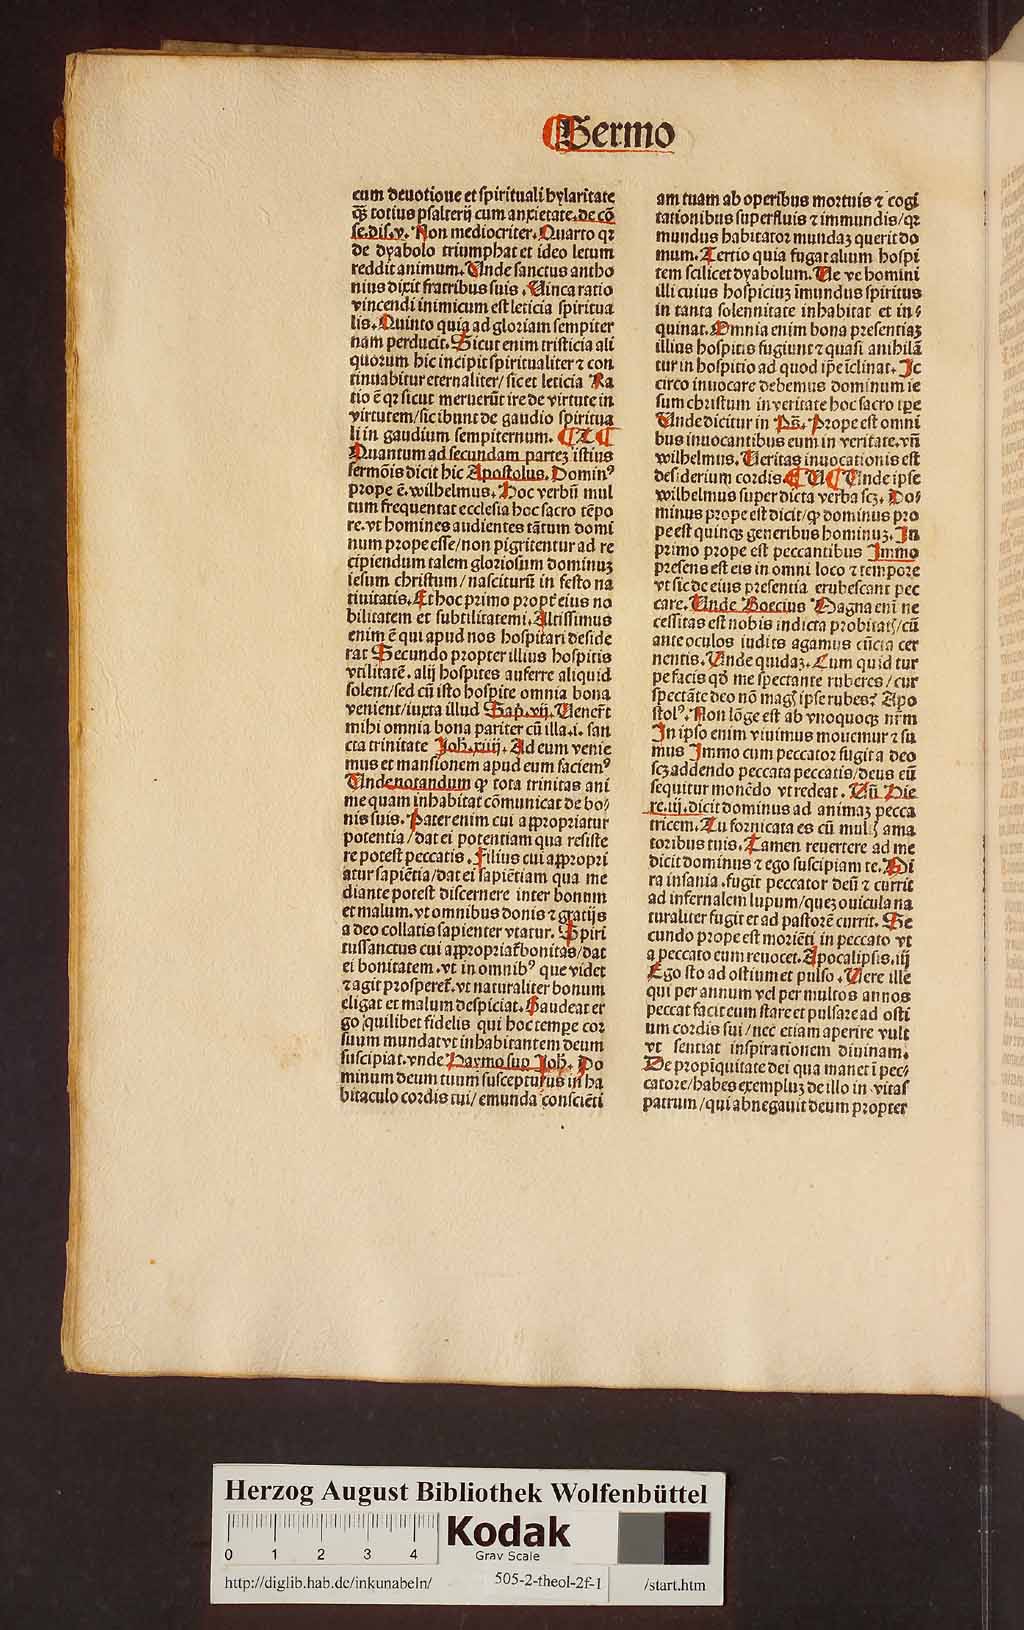 Sermo
cum deuotione et spirituali hylaritate
q̃ꝫ totius psalterij cum anxietate. de cõ
se. dis. v. Non mediocriter. Quarto qꝛ
de dyabolo triumphat et ideo letum
reddit animum. Unde sanctus antho
nius dixit fratribus suis. Uinca ratio
vincendi inimicum est leticia spiritua
lis. Quinto quia ad gloriam sempiter
nam perducit. Sicut enim tristicia ali
quorum hic incipit spiritualiter ⁊ con
tinuabitur eternaliter/sic et leticia Ra
tio ẽ qꝛ sicut meruerũt ire de virtute in
virtutem/sic ibunt de gaudio spiritua
li in gaudium sempiternum.
Quantum ad secundam parteꝫ istius
sermõis dicit hic Apostolus. Dominꝰ
prope ẽ. wilhelmus. Hoc verbũ mul
tum frequentat ecclesia hoc sacro tẽpo
re. vt homines audientes tãtum domi
num prope esse/non pigritentur ad re
cipiendum talem gloriosum dominuꝫ
iesum christum/nasciturũ in festo na
tiuitatis. Et hoc primo propt̃ eius no
bilitatem et subtilitatemi. Altissimus
enim ẽ qui apud nos hospitari deside
rat Secundo propter illius hospitis
vtilitatẽ. alij hospites auferre aliquid
solent/sed cũ isto hospite omnia bona
venient/iuxta illud Sap. vij. Uenert̃
mihi omnia bona pariter cũ illa. i. san
cta trinitate Joh̃. xiiij. Ad eum venie
mus et mansionem apud eum faciemꝰ
Unde notandum ꝙ tota trinitas ani
me quam inhabitat cõmunicat de bo⸗
nis suis. Pater enim cui appropriatur
potentia/dat ei potentiam qua resiste
re potest peccatis. Filius cui appropri
atur sapiẽtia/dat ei sapiẽtiam qua me
diante potest discernere inter bonum
et malum. vt omnibus donis ⁊ gratijs
a deo collatis sapienter vtatur. Spiri
tussanctus cui appropriat̃ bonitas/dat
ei bonitatem. vt in omnibꝰ que videt
⁊ agit prosperet̃. vt naturaliter bonum
eligat et malum despiciat. Gaudeat er
go quilibet fidelis qui hoc tempe cor
suum mundat vt inhabitantem deum
suscipiat. vnde Haymo sup Joh̃. Do
minum deum tuum suscepturus in ha
bitaculo cordis tui/emunda conscieti
am tuam ab operibus mortuis ⁊ cogi
tationibus superfluis ⁊ immundis/qꝛ
mundus habitator mundaꝫ querit do
mum. Tertio quia fugat alium hospi
tem scilicet dyabolum. Ue ve homini
illi cuius hospiciuꝫ ĩmundus spiritus
in tanta solennitate inhabitat et in⸗
quinat. Omnia enim bona presentiaꝫ
illius hospitis fugiunt ⁊ quasi anihilã
tur in hospitio ad quod ip̃e ĩclinat. Jc
circo inuocare debemus dominum ie
sum christum in veritate hoc sacro tp̃e
Unde dicitur in Ps̃. Prope est omni
bus inuocantibus eum in veritate. vñ
wilhelmus. Ueritas inuocationis est
desiderium cordis. Unde ipse
wilhelmus super dicta verba scꝫ. Do⸗
minus prope est dicit/ꝙ dominus pro
pe est quinqꝫ generibus hominuꝫ. In
primo prope est peccantibus Immo
presens est eis in omni loco ⁊ tempore
vt sic de eius presentia erubescant pec
care. Unde Boecius Magna enĩ ne
cessitas est nobis indicta probitatꝭ/cũ
ante oculos iudits agamus cũcta cer
nentis. Unde quidaꝫ. Cum quid tur
pe facis qđ me spectante ruberes/cur
spectãte deo nõ magꝭ ipse rubes? Apo
stolꝰ. Non lõge est ab vnoquoqꝫ nr̃m
In ipso enim viuimus mouemur ⁊ su
mus Immo cum peccator fugit a deo
scꝫ addendo peccata peccatis/deus eũ
sequitur monẽdo vt redeat. Uñ Hie
re. iij. dicit dominus ad animaꝫ pecca
tricem. Tu fornicata es cũ mulꝭ ama
toribus tuis. Tamen reuertere ad me
dicit dominus ⁊ ego suscipiam te. Mi
ra insania. fugit peccator deũ ⁊ currit
ad infernalem lupum/queꝫ ouicula na
turaliter fugit et ad pastorẽ currit. Se
cundo prope est moriẽti in peccato vt
a peccato eum reuocet. Apocalipsis. iij
Ego sto ad ostium et pulso. Uere ille
qui per annum vel per multos annos
peccat facit eum stare et pulsare ad osti
um cordis sui/nec etiam aperire vult
vt sentiat inspirationem diuinam.
De propiquitate dei qua manet ĩ pec⸗
catore/habes exempluꝫ de illo in vitas
patrum/qui abnegauit deum propter
Herzog August Bibliothek Wolfenbüttel
0 1 2 3 4
Kodak
Gray Scale
http://diglib.hab.de/inkunabeln/ 505-2-theol-2f-1 /start.htm